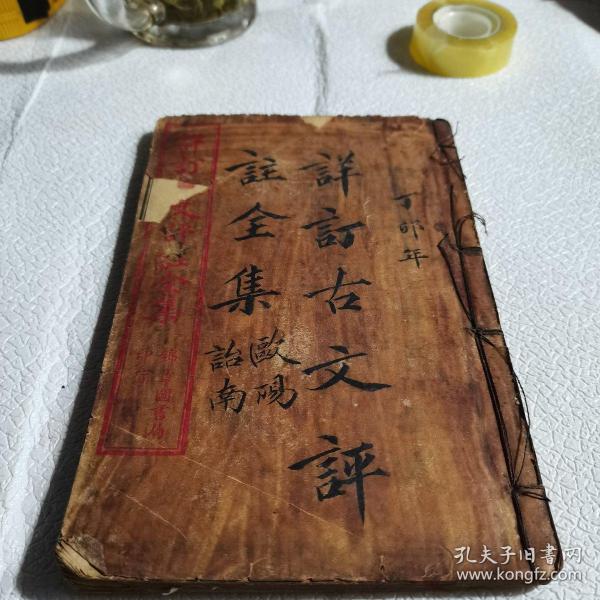 丁卯年
詳訂古文評
註全集
歐陽
詒南
孔夫子旧书网
www.kongfz.com